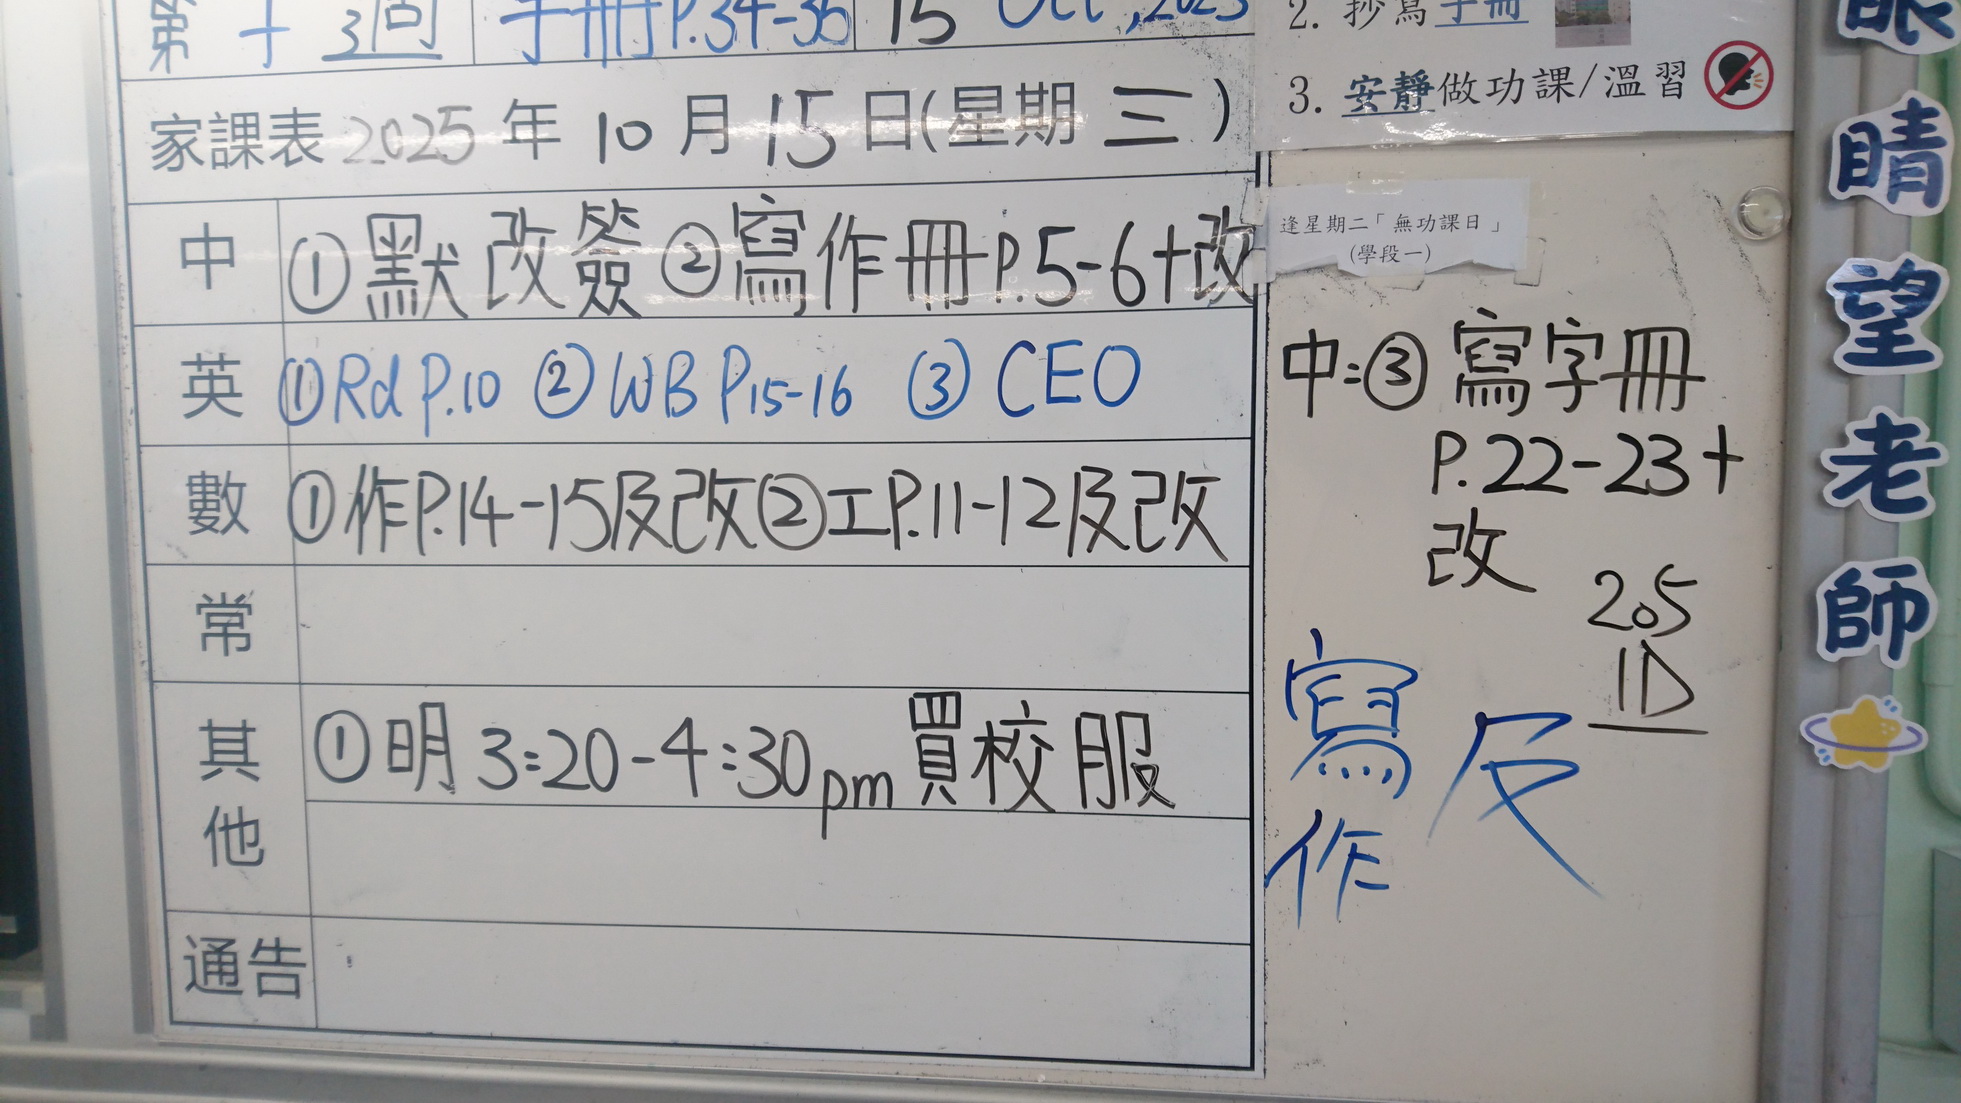 第十3周 手冊P.34-35 15 Oct,2025
家課表 2025年10月15日(星期三)
中 ①默改簽②寫作冊P.5-6+改
英 ①Rd P.10 ②WB P15-16 ③CEO
數 ①作P.14-15及改②工P.11-12及改
常
其他 ①明3:20-4:30pm買校服
通告
2. 抄寫手冊
3. 安靜做功課/溫習
逢星期二「無功課日」
(學段一)
中:③寫字冊
P.22-23+
改
205
1D
寫作
反
眼睛望老師